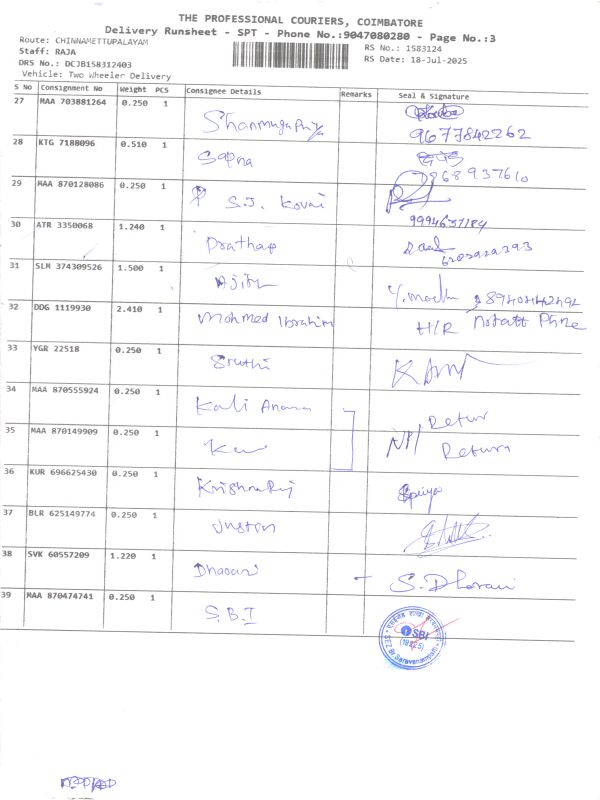 THE PROFESSIONAL COURIERS, COIMBATORE
Delivery Runsheet - SPT - Phone No.:9047080280 - Page No.:3
Route: CHINNAMETTUPALAYAM
RS No.: 1583124
Staff: RAJA
RS Date: 18-Jul-2025
DRS No.: DCJB158312403
Vehicle: Two Wheeler Delivery
S No Consignment No Weight PCS Consignee Details Remarks Seal & Signature
27 MAA 703881264 0.250 1 Shanmugapriya
9677842262
28 KTG 7188096 0.510 1 Sapna
7868937610
29 MAA 870128086 0.250 1 S.J. Kovai
9994637184
30 ATR 3350068 1.240 1 Prathap
31 SLM 374309526 1.500 1 Ajith
32 DDG 1119930 2.410 1 Mohmed Ibrahim H/R
33 YGR 22518 0.250 1 Sruthi
34 MAA 870555924 0.250 1 Kali Return
35 MAA 870149909 0.250 1 Return
36 KUR 696625430 0.250 1 Krishna Raj Priya
37 BLR 625149774 0.250 1
38 SVK 60557209 1.220 1 Dharani S. Dharani
39 MAA 870474741 0.250 1 S.B.I
SBI